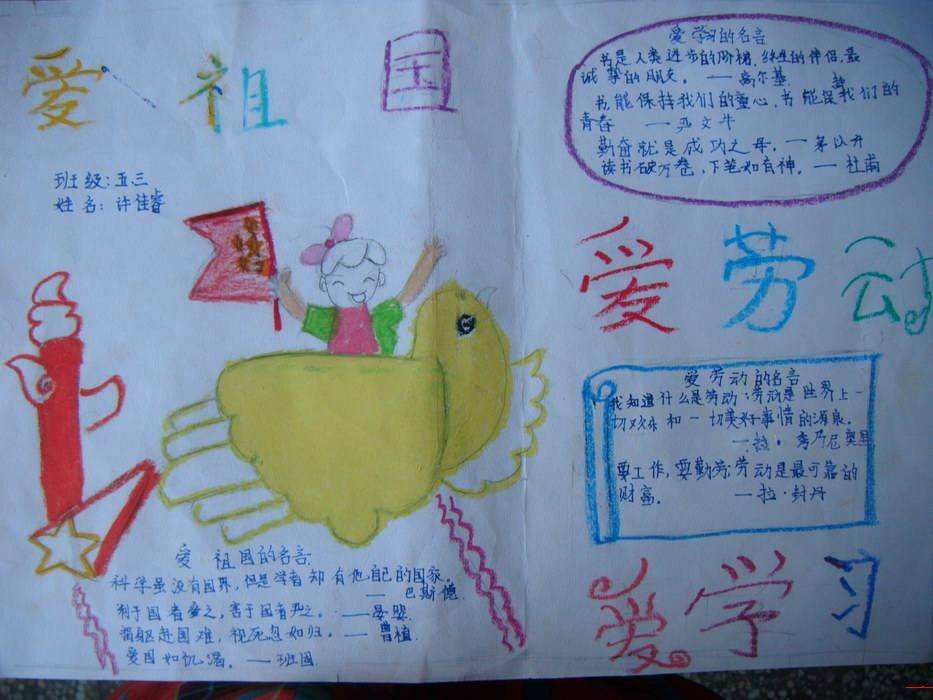 爱祖国
班级:五.三
姓名:许佳睿
爱学习的名言
书是人类进步的阶梯,终生的伴侣,最
诚挚的朋友。——高尔基
书能保持我们的童心,书能促我们的
青春 ——严文牛
勤奋就是成功之母。——茅以升
读书破万卷,下笔如有神。——杜甫
爱劳动
爱劳动的名言
我知道什么是劳动:劳动是世界上一
切欢乐和一切美好事情的源泉。
要工作,要勤劳:劳动是最可靠的
财富。 ——拉·封丹
爱祖国的名言
科学虽没有国界,但是学者却有他自己的国家。
——巴斯德
利于国者爱之,害于国者恶之。——晏婴
捐躯赴国难,视死忽如归。——曹植
爱国如饥渴。——班固
爱学习